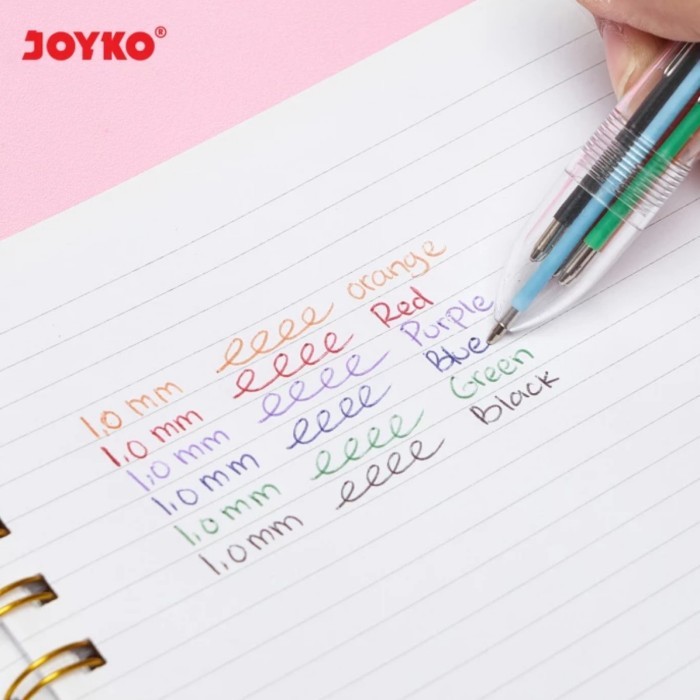 JOYKO®
1.0 mm eeee orange
1.0 mm eeee Red
1.0 mm eeee Purple
1.0 mm eeee Blue
1.0 mm eeee Green
1.0 mm eeee Black